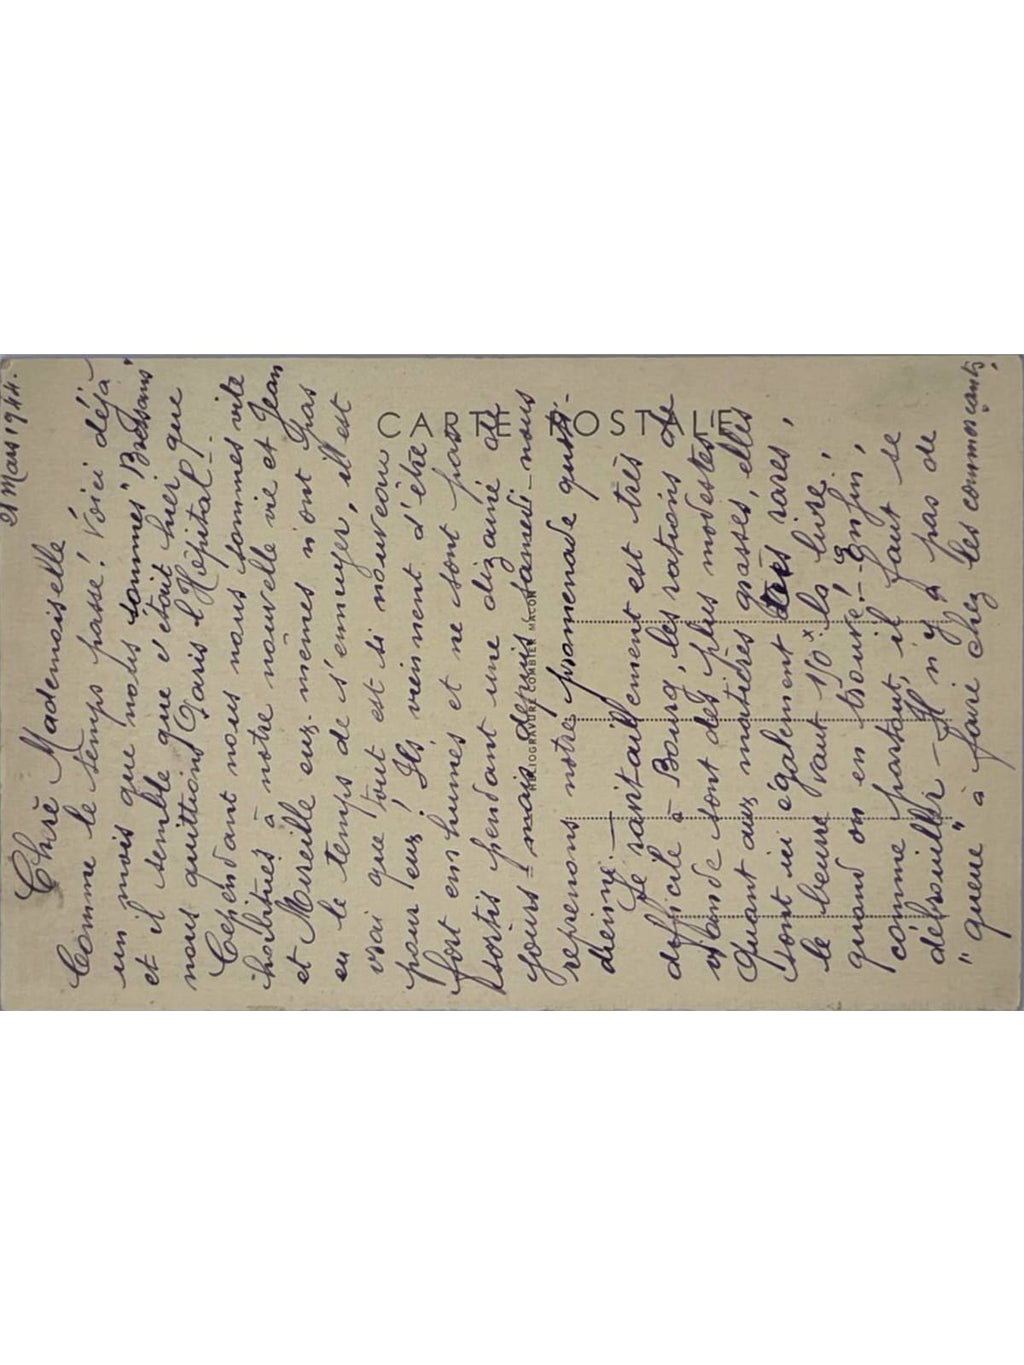 21 Mars 1944.
Chère Mademoiselle
Comme le temps passe! Voici déjà
un mois que nous sommes "Bressans"
et il semble que c'était hier que
nous quittions Paris l'Hôpital.-
Cependant nous nous sommes vite
habitués à notre nouvelle vie et Jean
et Mireille eux-mêmes n'ont pas
eu le temps de s'ennuyer, il est
vrai que tout est si nouveau
pour eux! Ils viennent d'être
fort enrhumés et ne sont pas
sortis pendant une dizaine de
jours - mais depuis samedi - nous
reprenons notre promenade quoti-
dienne.-
Le ravitaillement est très
difficile à Bourg, les rations de
viande sont des plus modestes
Quant aux matières grasses, elles
sont ici également très rares,
le beurre vaut 150 x la livre,
quand on en trouve! - Enfin,
comme partout, il faut se
débrouiller - Il n'y a pas de
"queue" à faire chez les commerçants,
CARTE POSTALE
HÉLIOGRAVURE COMBIER MACON